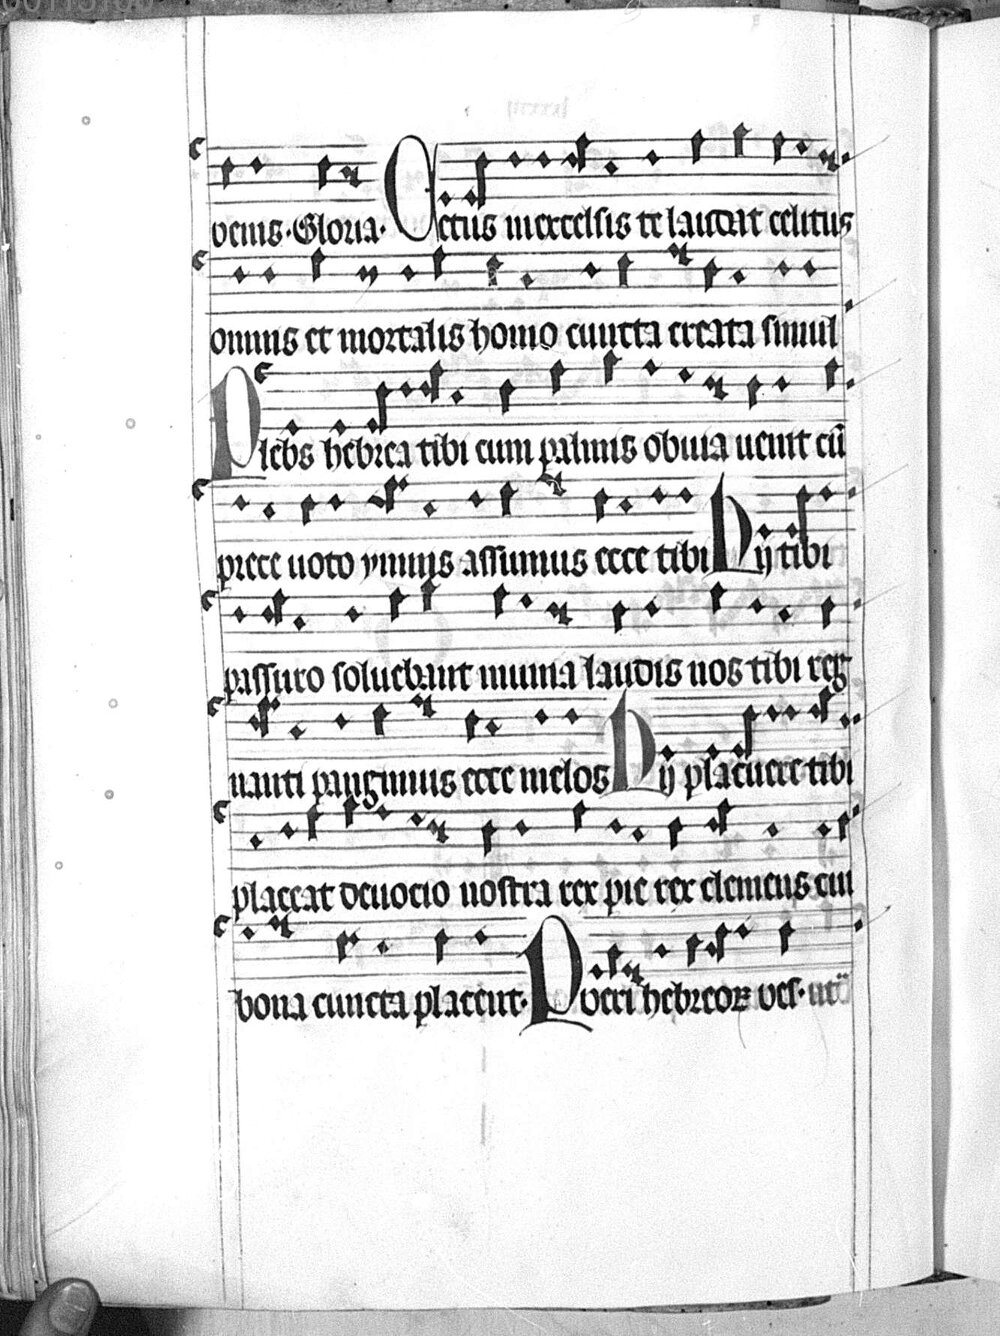 venis · Gloria · Cetus in excelsis te laudat celitus
omnis et mortalis homo cuncta creata simul
Plebs hebrea tibi cum palmis obvia venit cū
prece uoto ymnis assumus ecce tibi Hij tibi
passuro soluebant munia laudis nos tibi reg
nanti pangimus ecce melos Hij placuere tibi
placeat deuocio nostra rex pie rex clemens cui
bona cuncta placent · Pveri hebreoꝝ ves · ut